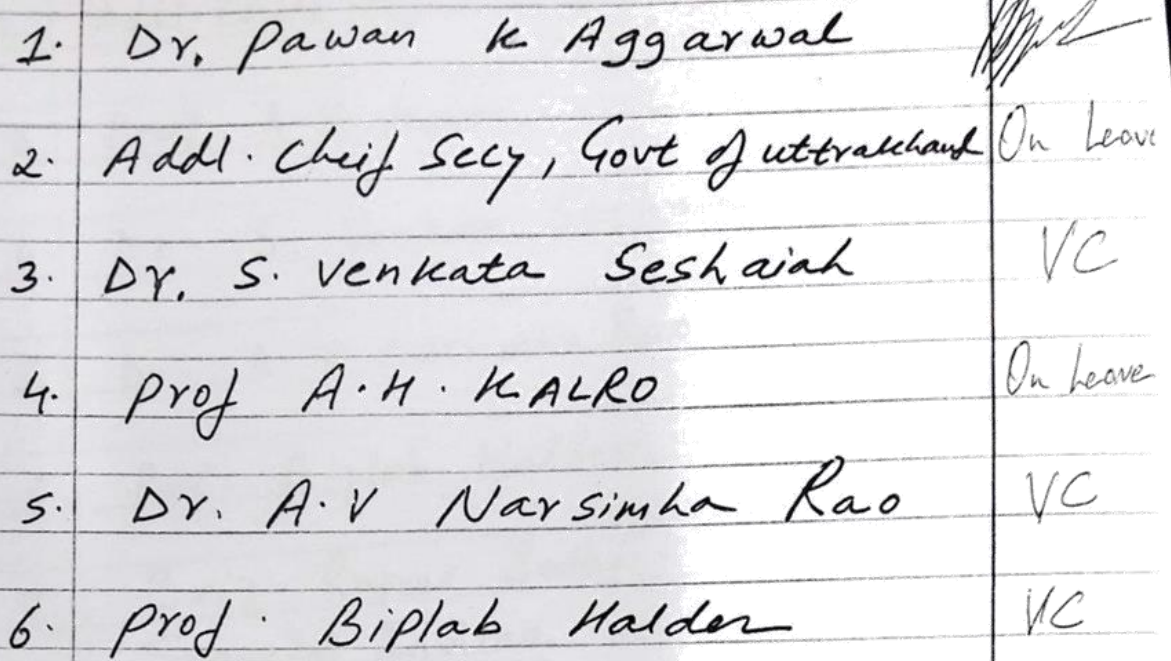 1. Dr. Pawan K Aggarwal
2. Addl. Cheif Secy, Govt of uttrakhand On Leave
3. Dr. S. Venkata Seshaiah VC
4. Prof A.H. KALRO On Leave
5. Dr. A.V Narsimha Rao VC
6. Prof. Biplab Halder VC